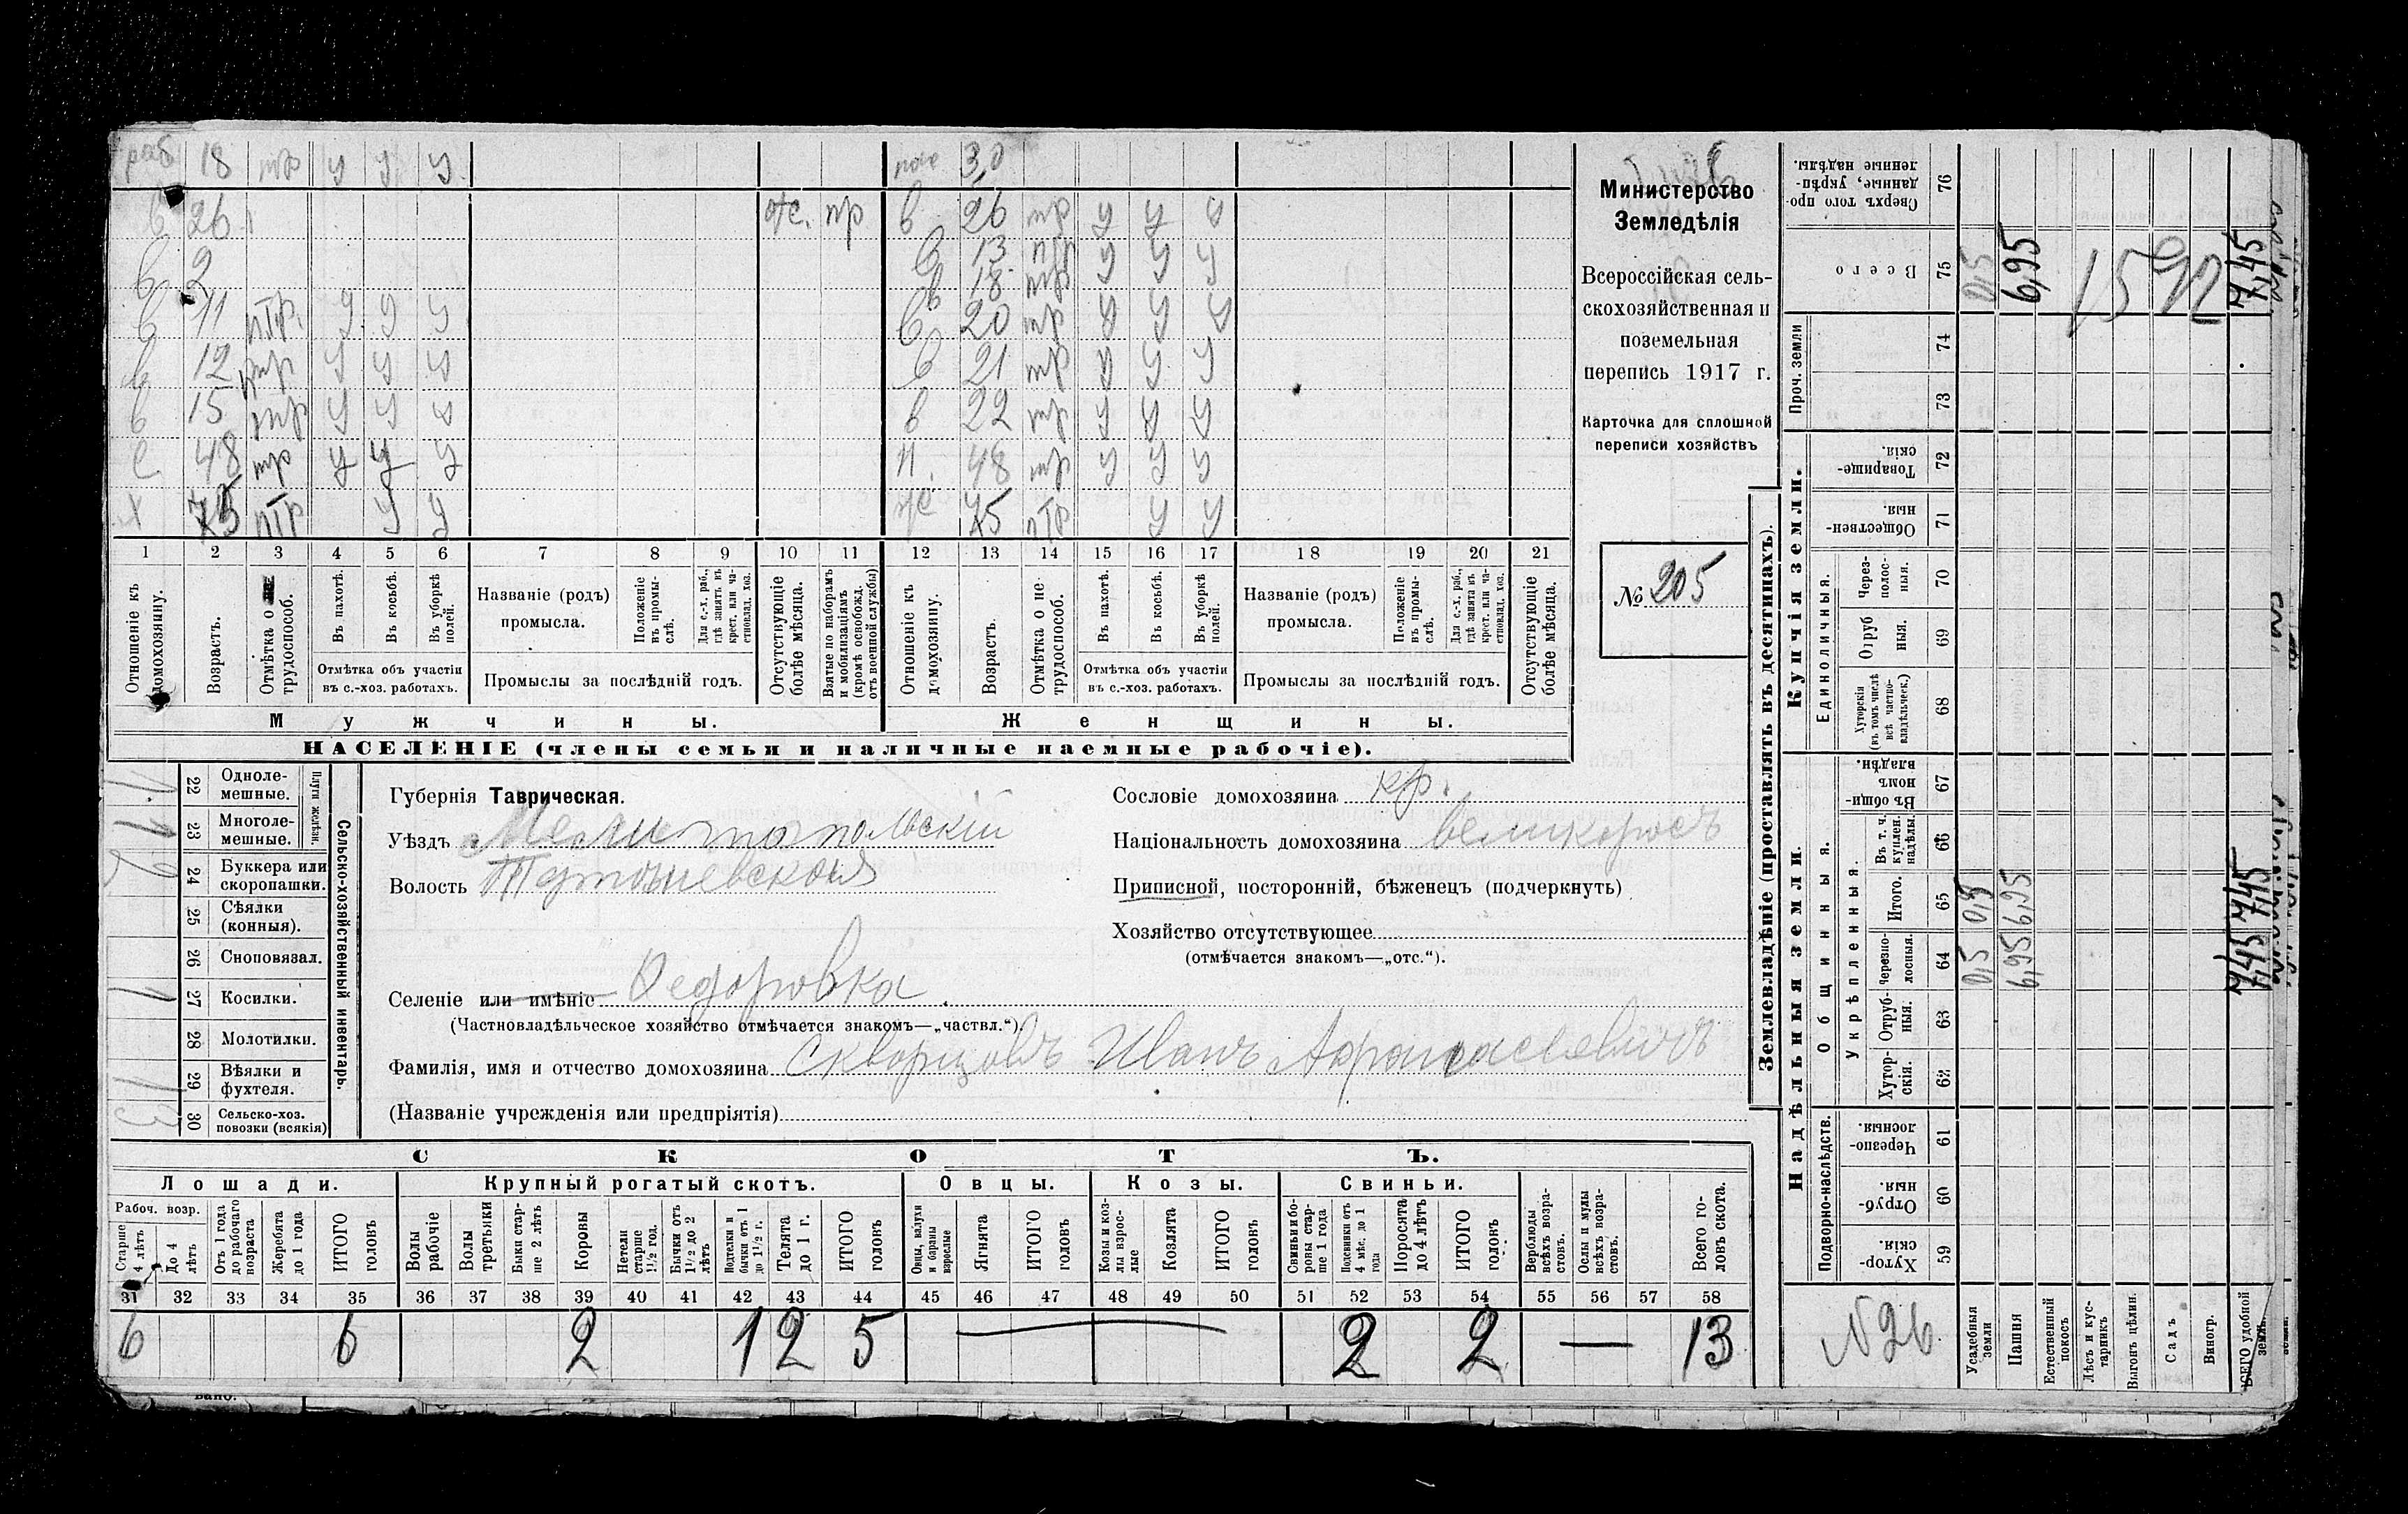 раб 18 тр у у у пос 3,0
в 26 отс. пр в 26 тр у у у
в 2 в 13 птр у у у
в 18 тр у у у
в 11 птр. у у у в 20 тр у у у
в 12 птр у у у в 21 тр у у у
в 15 тр у у у в 22 тр у у у
с 48 тр у у у п. 48 тр у у у
х 75 птр у у 75 птр у у
1 2 3 4 5 6 7 8 9 10 11 12 13 14 15 16 17 18 19 20 21
Отношеніе къ домохозяину.
Возрастъ.
Отмѣтка о не трудоспособ.
Въ пахотѣ.
Въ косьбѣ.
Въ уборкѣ полей.
Отмѣтка объ участіи въ с.-хоз. работахъ.
Названіе (родъ) промысла.
Положеніе въ промы-слѣ.
Для с.-х. раб., гдѣ занятъ въ крест. или ча-стновлад. хоз.
Промыслы за послѣдній годъ.
Отсутствующіе болѣе мѣсяца.
Взятые по наборамъ и мобилизаціямъ (кромѣ освобожд. отъ военной службы)
Отношеніе къ домохозяину.
Возрастъ.
Отмѣтка о не трудоспособ.
Въ пахотѣ.
Въ косьбѣ.
Въ уборкѣ полей.
Отмѣтка объ участіи въ с.-хоз. работахъ.
Названіе (родъ) промысла.
Положеніе въ промы-слѣ.
Для с.-х. раб., гдѣ занята въ крест. или ча-стновлад. хоз.
Промыслы за послѣдній годъ.
Отсутствующіе болѣе мѣсяца.
Мужчины. Женщины.
НАСЕЛЕНІЕ (члены семьи и наличные наемные рабочіе).
Министерство
Земледѣлія
Всероссійская сель-
скохозяйственная и
поземельная
перепись 1917 г.
Карточка для сплошной
переписи хозяйствъ
№ 205
22 Одноле-мешные. 1
23 Многоле-мешные. 1
Плуги желѣзн.
24 Буккера или скоропашки. 2
25 Сѣялки (конныя).
26 Сноповязал.
27 Косилки. 1
28 Молотилки.
29 Вѣялки и фухтеля. 1
30 Сельско-хоз. повозки (всякія) 3
Сельско-хозяйственный инвентарь.
Губернія Таврическая.
Уѣздъ Мелитопольскій
Волость
Селеніе или имѣніе Федоровка.
(Частновладѣльческое хозяйство отмѣчается знакомъ—„частвл.“).
Фамилія, имя и отчество домохозяина Скворцовъ Иванъ Афанасіевичъ
(Названіе учрежденія или предпріятія)
Сословіе домохозяина кр.
Національность домохозяина великоросъ
Приписной, посторонній, бѣженецъ (подчеркнуть)
Хозяйство отсутствующее
(отмѣчается знакомъ—„отс.“).
СКОТЪ.
Лошади. Крупный рогатый скотъ. Овцы. Козы. Свиньи.
Рабоч. возр.
Старше 4 лѣтъ
До 4 лѣтъ
Отъ 1 года до рабочаго возраста
Жеребята до 1 года
ИТОГО головъ
Волы рабочіе
Волы третьяки
Быки стар-ше 2 лѣтъ
Коровы
Нетели старше 1½ год.
Бычки отъ 1½ до 2 лѣтъ
Подтелки и бычки отъ 1 до 1½ г.
Телята до 1 г.
ИТОГО головъ
Овцы, валухи и бараны взрослые
Ягнята
ИТОГО головъ
Козы и коз-лы взрос-лые
Козлята
ИТОГО головъ
Свиньи и бо-ровы стар-ше 1 года
Подсвинки отъ 4 мѣс. до 1 года
Поросята до 4 лѣтъ
ИТОГО головъ
Верблюды всѣхъ возра-стовъ.
Ослы и мулы всѣхъ возра-стовъ.
Всего го-ловъ скота.
31 32 33 34 35 36 37 38 39 40 41 42 43 44 45 46 47 48 49 50 51 52 53 54 55 56 57 58
6 6 2 1 2 5 — 2 2 — 13
Землевладѣніе (проставлять въ десятинахъ).
Купчія земли.
Надѣльныя земли.
Сверхъ того про-данные, укрѣп-ленные надѣлы. 76
Всего 75 0,5 6,95 1592 7,45
Проч. земли 74 73
Товарище-скія. 72
Обществен-ныя. 71
Единоличныя.
Через-полос-ныя. 70
Отруб ныя. 69
Хуторскія (въ томъ числѣ всѣ частно-владѣльческ.) 68
Общинныя.
Въ общин-номъ владѣн. 67
Укрѣпленныя.
Въ т. ч. куплен. надѣлы. 66
Итого. 65 0,5 6,95 7,45
Черезпо-лосныя. 64 0,5 6,95 7,45
Отруб-ныя. 63
Хутор-скія. 62
Подворно-наслѣдств.
Черезпо-лосныя. 61
Отруб-ныя. 60
Хутор-скія. 59
N 26
Усадебныя земли
Пашня
Естественный покосъ
Лѣсъ и кус-тарникъ
Выгонъ цѣлин.
Садъ
Виногр.
ВСЕГО удобной земли.